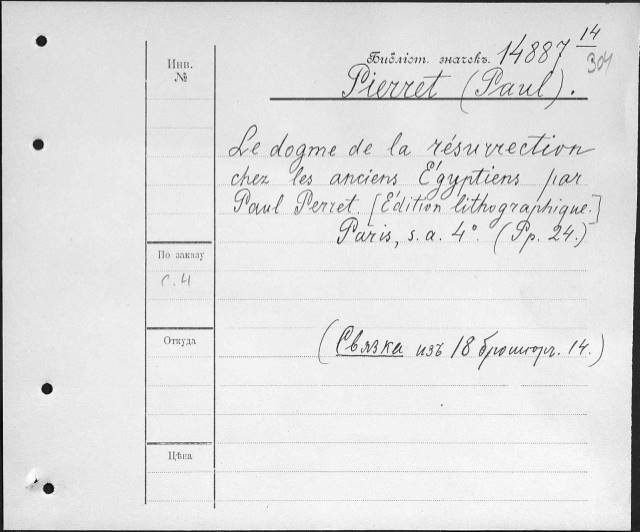 Инв.
№
Библіот. значекъ. 14887 14
304
Pierret (Paul).
Le dogme de la résurrection
chez les anciens Égyptiens par
Paul Perret. [Édition lithographique.]
Paris, s. a. 4º. (Pp. 24.)
По заказу
с. 4
Откуда
(Связка изъ 18 брошюр. 14.)
Цѣна